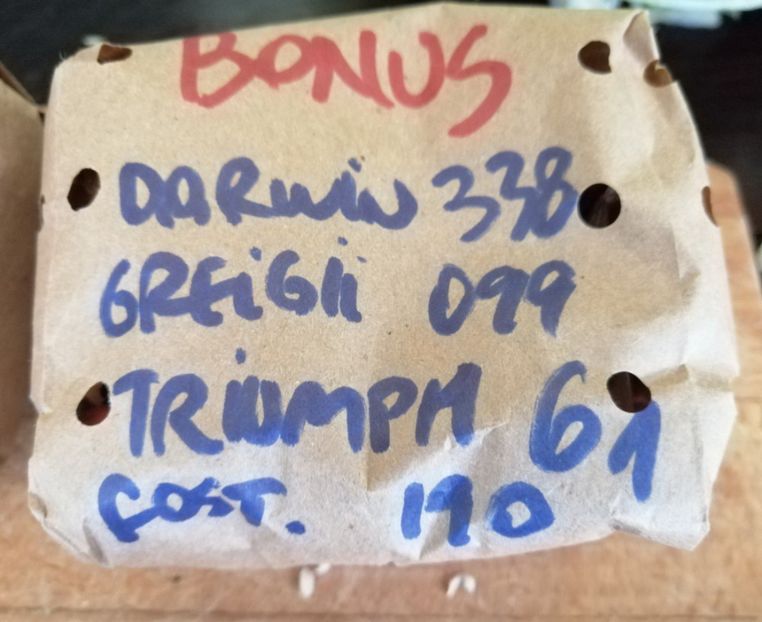 BONUS
DARWiN 338
GREiGii 099
TRiUMPH 61
FOST. 190